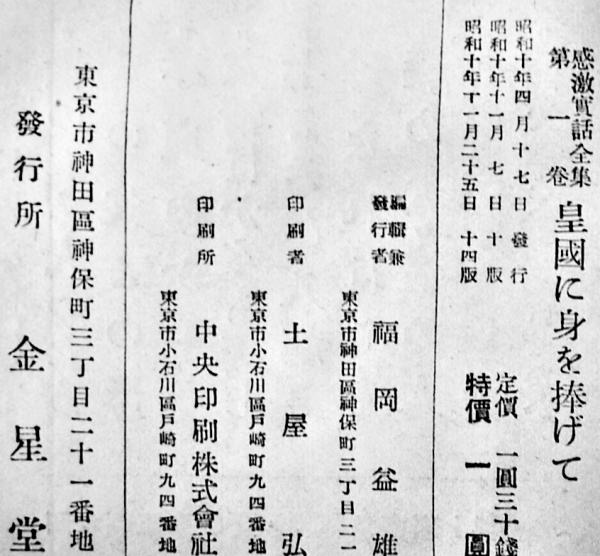 感激實話全集
第一卷
皇國に身を捧げて
昭和十年四月十七日發行
昭和十年十一月七日十版
昭和十年十一月二十五日十四版
定價一圓三十錢
特價一圓
編輯兼
發行者
福岡益雄
東京市神田區神保町三丁目二一
印刷者
土屋弘
東京市小石川區戸崎町九四番地
印刷所
中央印刷株式會社
東京市小石川區戸崎町九四番地
東京市神田區神保町三丁目二十一番地
發行所
金星堂